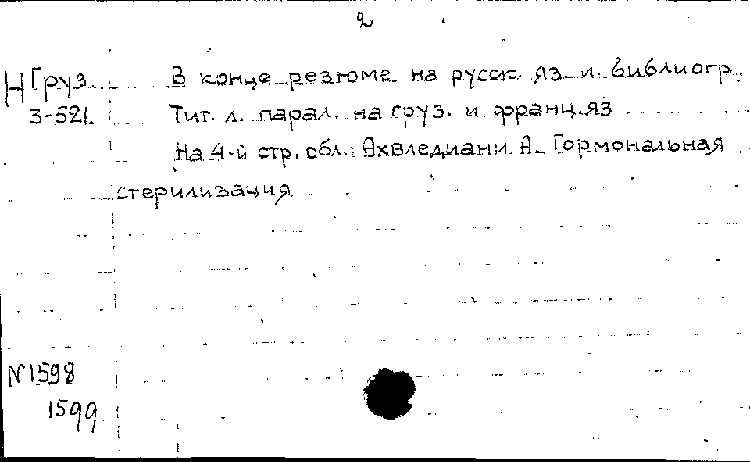 2
Н Груз.
3-521.
В конце резюме на русск. яз. и библиогр.
Тит. л. парал. на груз. и франц. яз
На 4-й стр. обл.: Ахвледиани А. Гормональная
стерилизация
№ 1598
1599